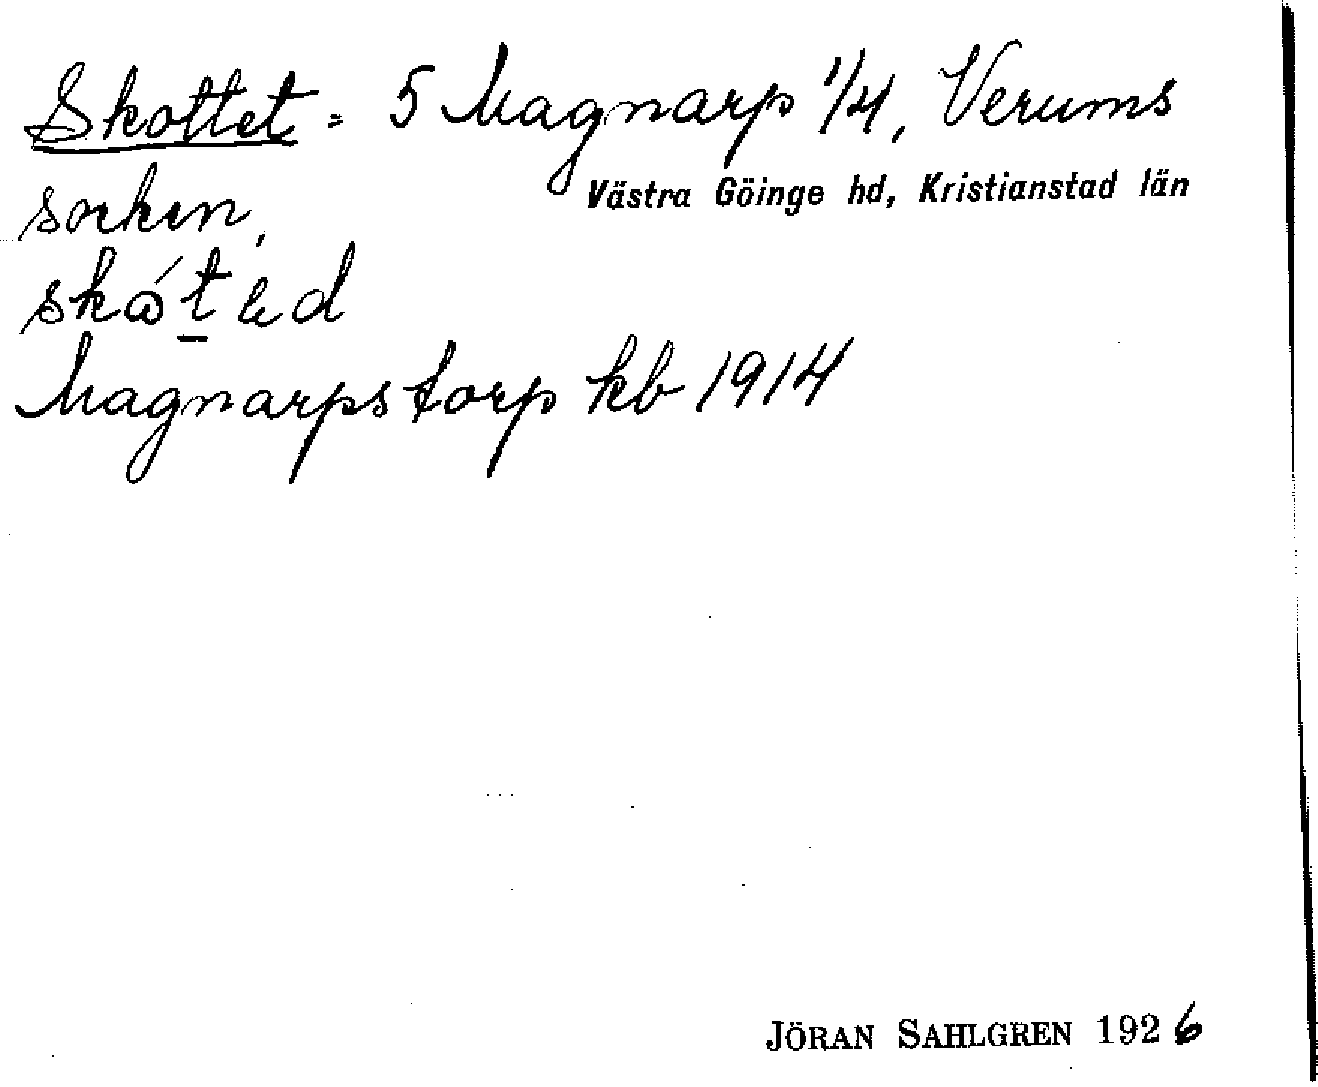 Skottet = 5 Magnarp 1/4, Verums
Västra Göinge hd, Kristianstad län
socken,
Magnarpstorp kb 1914
JÖRAN SAHLGREN 1926